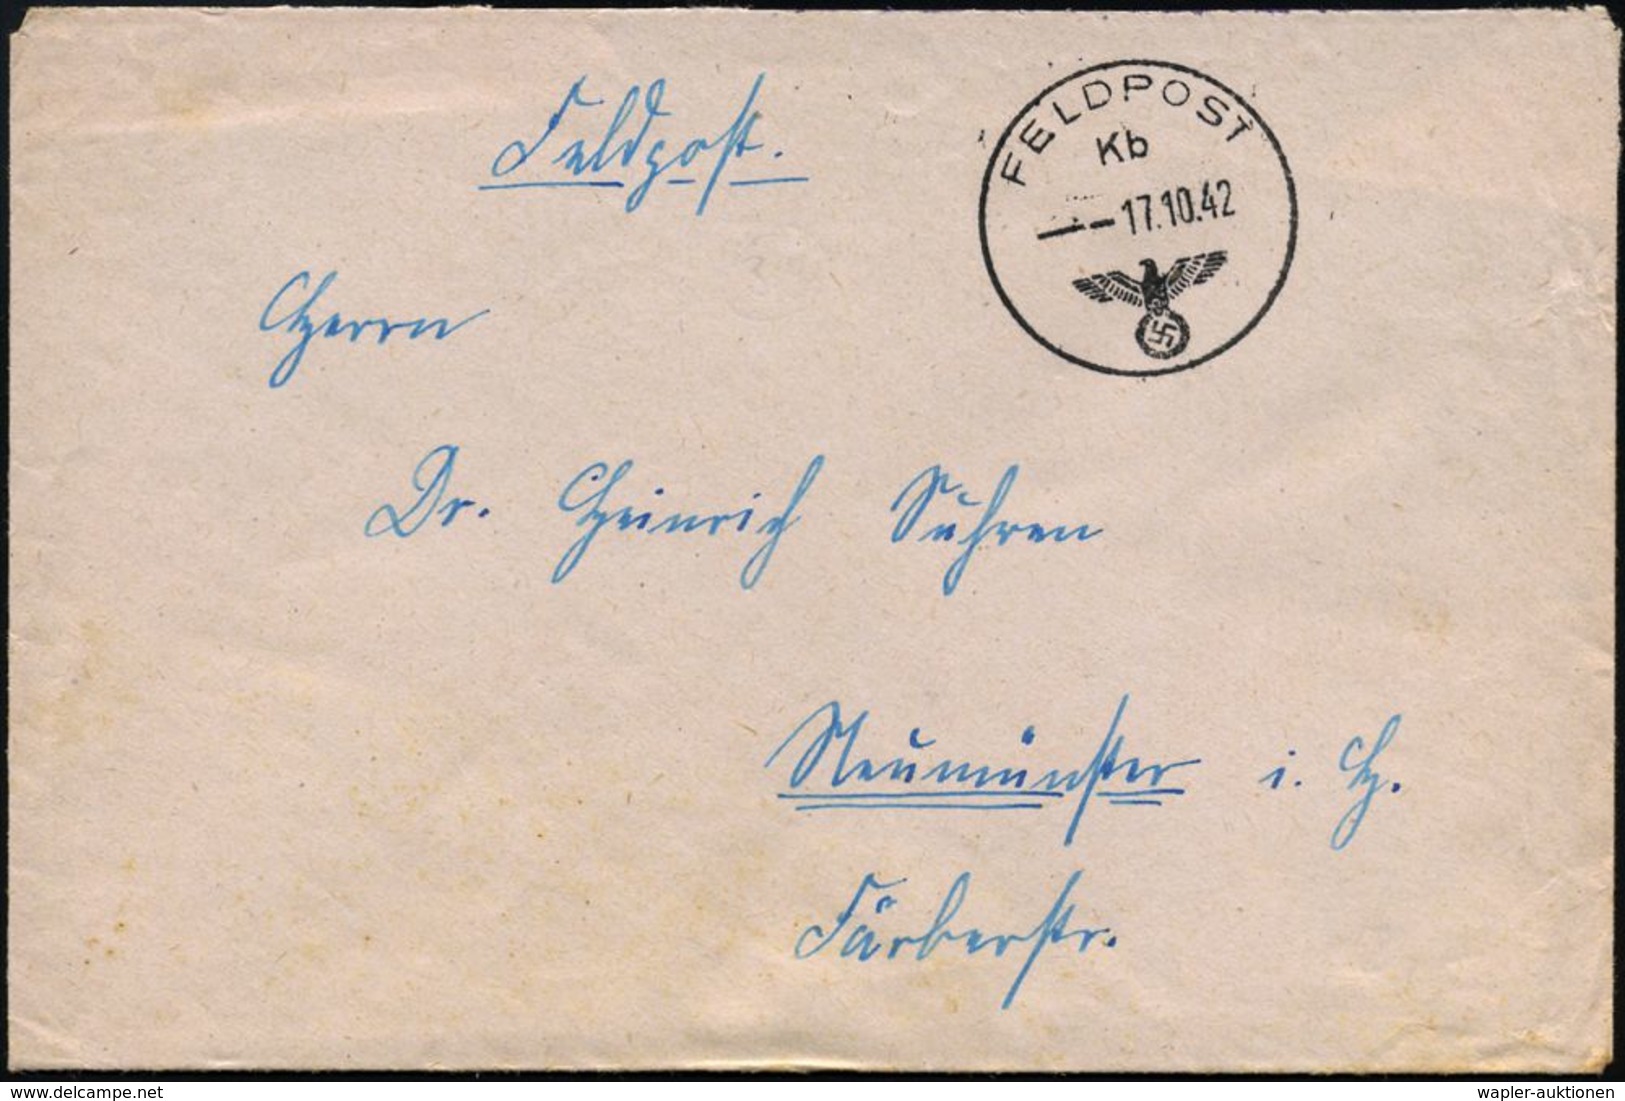 Feldpost.
FELDPOST
Kb
17.10.42
Herrn
Dr. Heinrich Suhren
Neumünster i. H.
Färberstr.
delcampe.net
wapler-auktionen